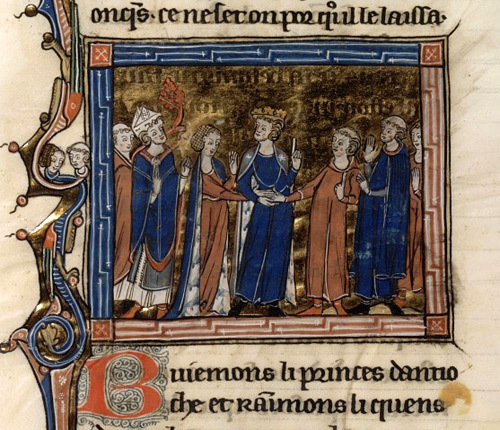 onq̃s. ce ne set on por q̃ il le laissa.
Buiemons li princes dantio
che et raimons li quens